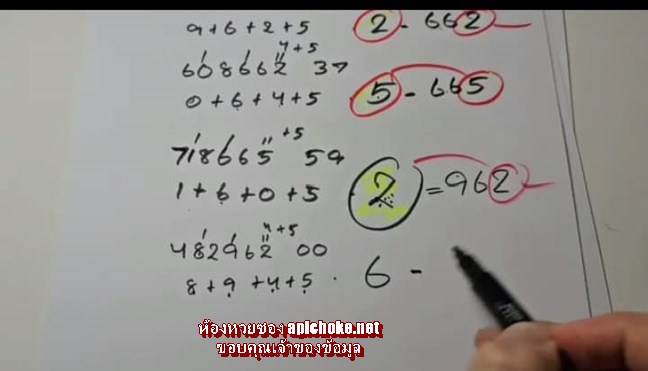 9+6+2+5 2 - 662
4+5
608662 37 5 - 665
0+6+4+5
+5
718665 59
1+6+0+5 2 = 962
4+5
482962 00
8+9+4+5 . 6 -
ห้องหวยซอง apichoke.net
ขอบคุณเจ้าของข้อมูล